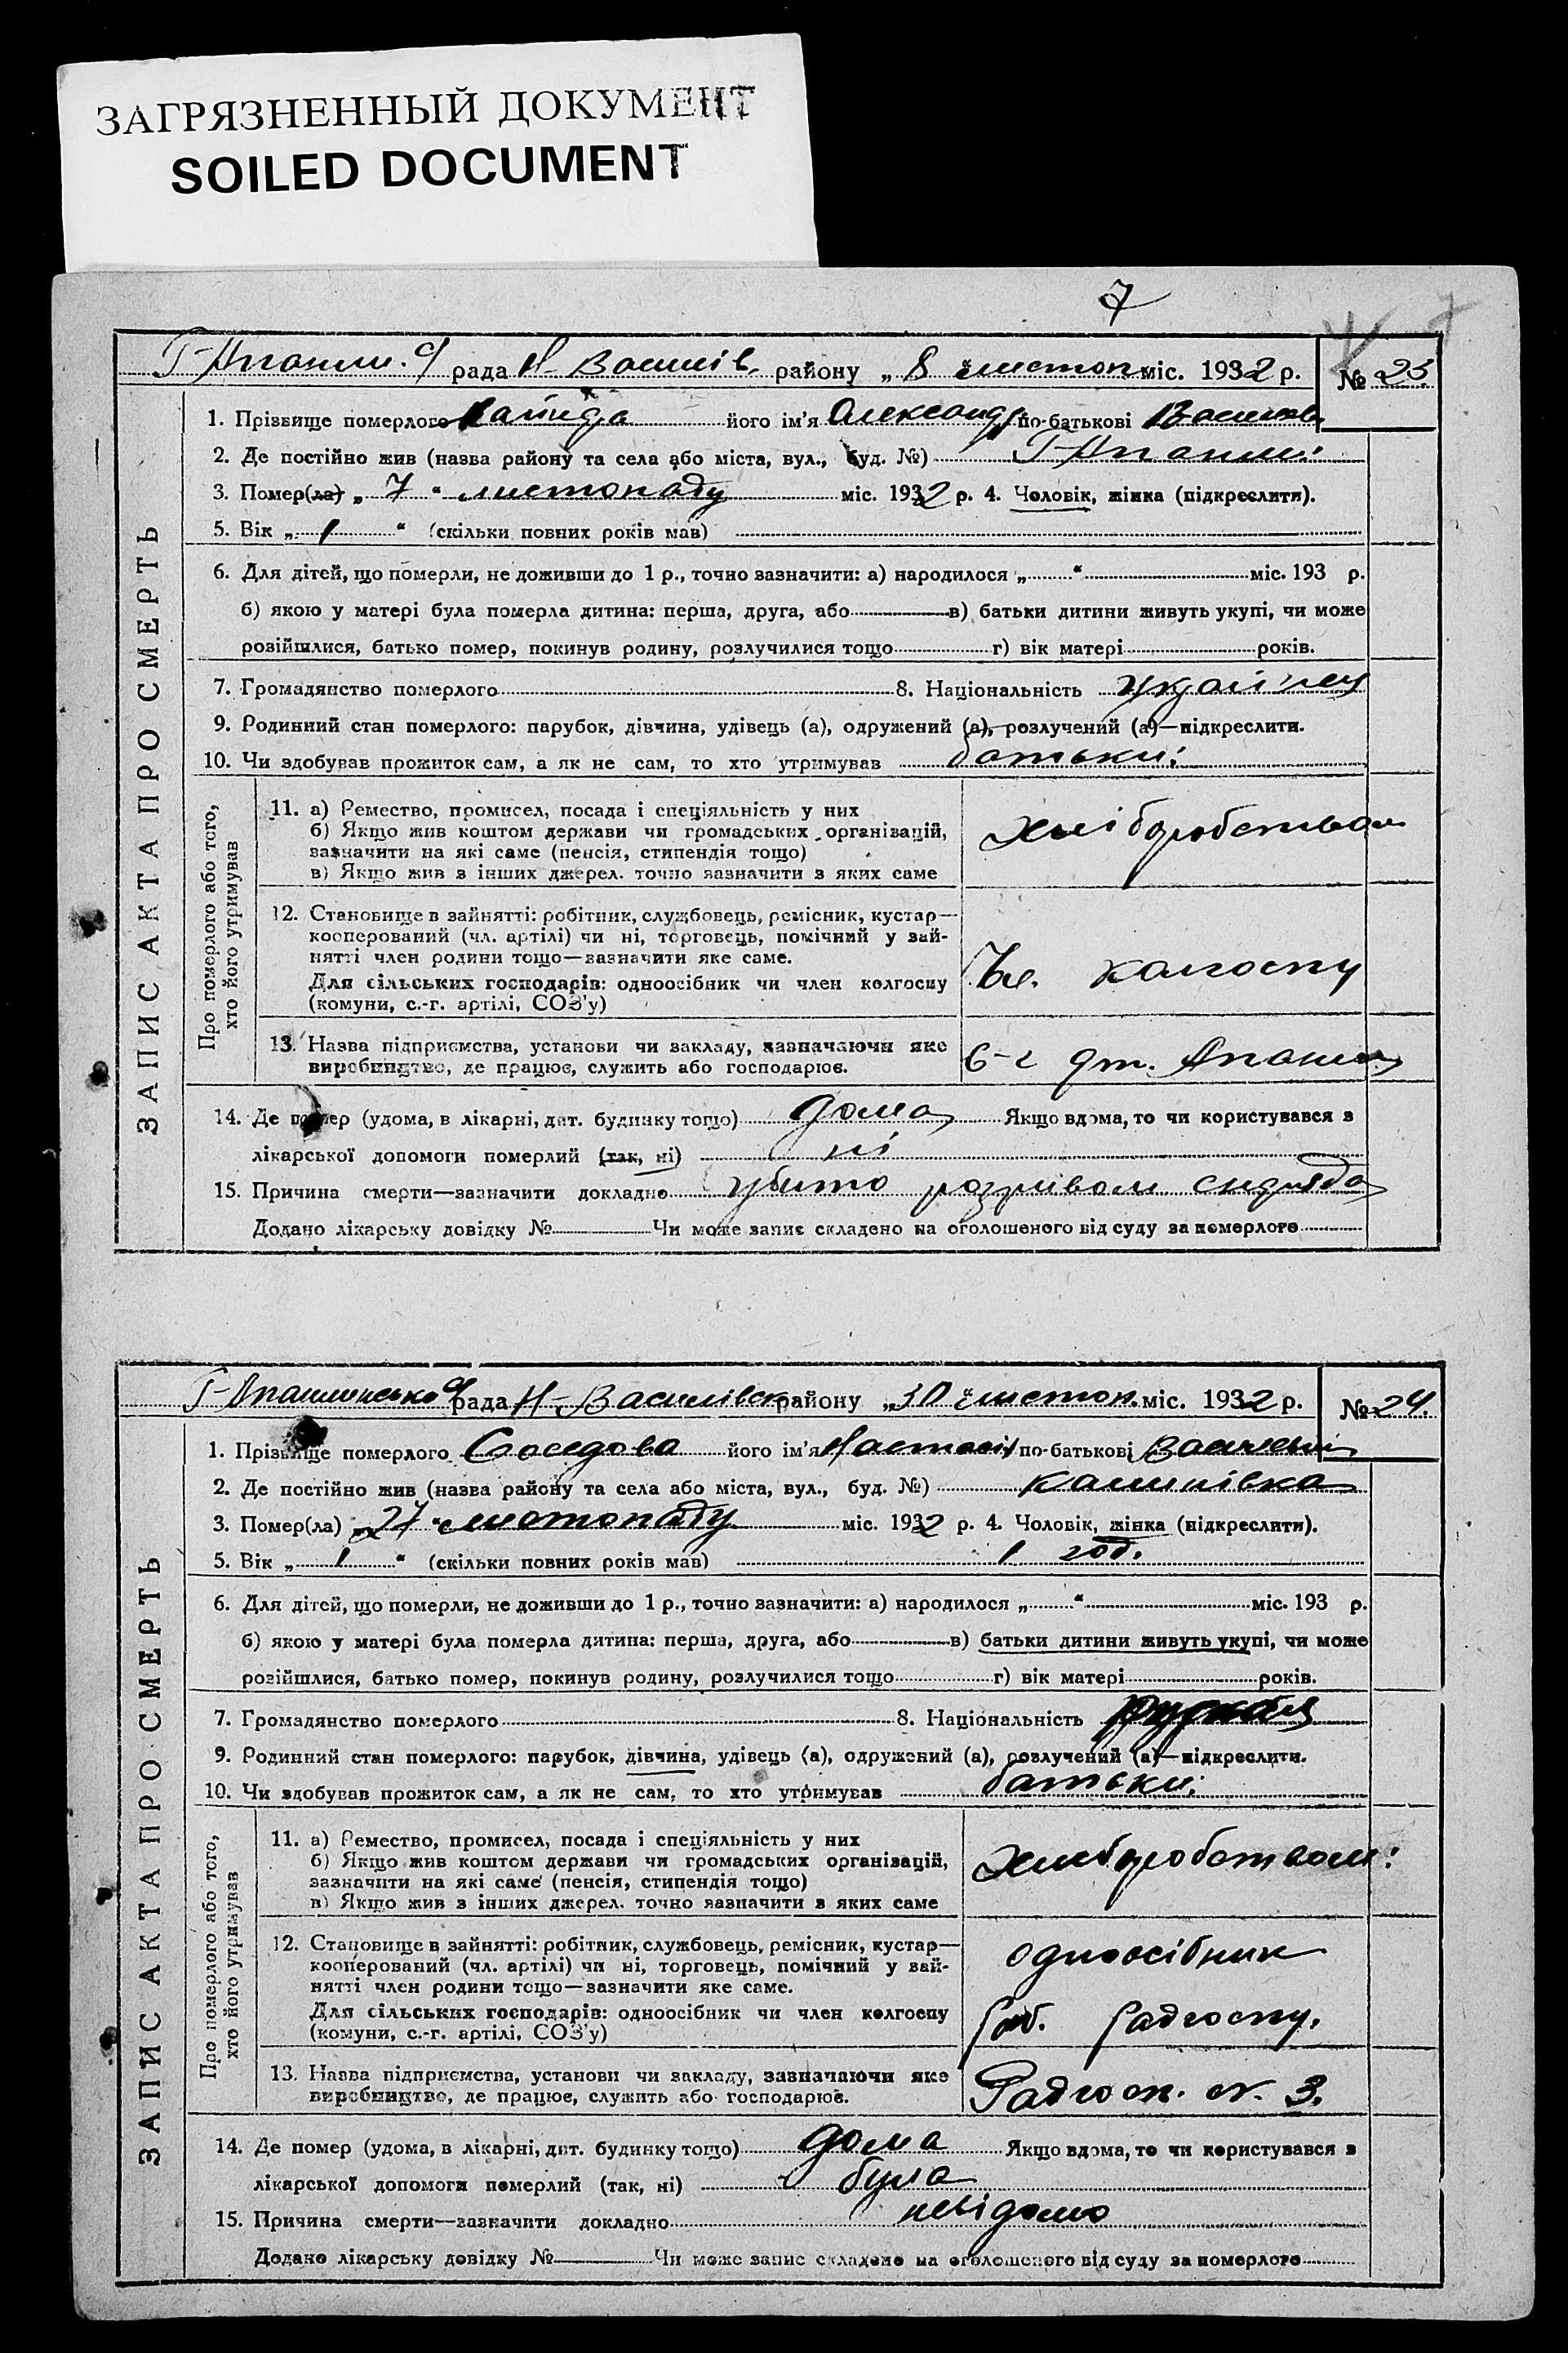 ЗАГРЯЗНЕННЫЙ ДОКУМЕНТ
SOILED DOCUMENT
7
рада Н-Василів. району „ 8 " листоп. міс. 1932 р. № 23.
ЗАПИС АКТА ПРО СМЕРТЬ
1. Прізвище померлого його ім'я Олександр по-батькові
2. Де постійно жив (назва району та села або міста, вул., буд. №)
3. Помер(ла) „ 7 " листопаду міс. 1932 р. 4. Чоловік, жінка (підкреслити).
5. Вік „ 1 " (скільки повних років мав)
6. Для дітей, що померли, не доживши до 1 р., точно зазначити: а) народилося „ " міс. 193 р.
б) якою у матері була померла дитина: перша, друга, або в) батьки дитини живуть укупі, чи може
розійшлися, батько помер, покинув родину, розлучилися тощо г) вік матері років.
7. Громадянство померлого 8. Національність українец
9. Родинний стан померлого: парубок, дівчина, удівець (а), одружений (а), розлучений (а)—підкреслити.
10. Чи здобував прожиток сам, а як не сам, то хто утримував батьки.
Про померлого або того,
хто його утримував
11. а) Ремество, промисел, посада і спеціяльність у них
б) Якщо жив коштом держави чи громадських організацій,
зазначити на які саме (пенсія, стипендія тощо)
в) Якщо жив з інших джерел. точно зазначити з яких саме
хліборобством
12. Становище в зайнятті: робітник, службовець, ремісник, кустар—
кооперований (чл. артілі) чи ні, торговець, помічний у зай-
нятті член родини тощо—зазначити яке саме.
Для сільських господарів: одноосібник чи член колгоспу
(комуни, с.-г. артілі, СОЗ'у)
Чл. колгоспу
13. Назва підприємства, установи чи закладу, зазначаючи яке
виробництво, де працює, служить або господарює.
14. Де помер (удома, в лікарні, дит. будинку тощо) дома Якщо вдома, то чи користувався з
лікарської допомоги померлий (так, ні) ні
15. Причина смерти—зазначити докладно убито розривом снаряда
Додано лікарську довідку № Чи може запис складено на оголошеного від суду за померлого
рада Н-Василівск району „ 30 " листоп. міс. 1932 р. № 24.
ЗАПИС АКТА ПРО СМЕРТЬ
1. Прізвище померлого Соседова його ім'я Настасія по-батькові
2. Де постійно жив (назва району та села або міста, вул., буд. №) Калинівка
3. Помер(ла) „ 27 " листопаду міс. 1932 р. 4. Чоловік, жінка (підкреслити).
5. Вік „ 1 " (скільки повних років мав) 1 год.
6. Для дітей, що померли, не доживши до 1 р., точно зазначити: а) народилося „ " міс. 193 р.
б) якою у матері була померла дитина: перша, друга, або в) батьки дитини живуть укупі, чи може
розійшлися, батько помер, покинув родину, розлучилися тощо г) вік матері років.
7. Громадянство померлого 8. Національність
9. Родинний стан померлого: парубок, дівчина, удівець (а), одружений (а), розлучений (а)—підкреслити.
10. Чи здобував прожиток сам, а як не сам, то хто утримував батьки.
Про померлого або того,
хто його утримував
11. а) Ремество, промисел, посада і спеціяльність у них
б) Якщо жив коштом держави чи громадських організацій,
зазначити на які саме (пенсія, стипендія тощо)
в) Якщо жив з інших джерел. точно зазначити з яких саме
хліборобством.
12. Становище в зайнятті: робітник, службовець, ремісник, кустар—
кооперований (чл. артілі) чи ні, торговець, помічний у зай-
нятті член родини тощо—зазначити яке саме.
Для сільських господарів: одноосібник чи член колгоспу
(комуни, с.-г. артілі, СОЗ'у)
одноосібник
роб. радгоспу.
13. Назва підприємства, установи чи закладу, зазначаючи яке
виробництво, де працює, служить або господарює.
Радгосп. 3.
14. Де помер (удома, в лікарні, дит. будинку тощо) дома Якщо вдома, то чи користувався з
лікарської допомоги померлий (так, ні) була
15. Причина смерти—зазначити докладно невідомо
Додано лікарську довідку № Чи може запис складено на оголошеного від суду за померлого